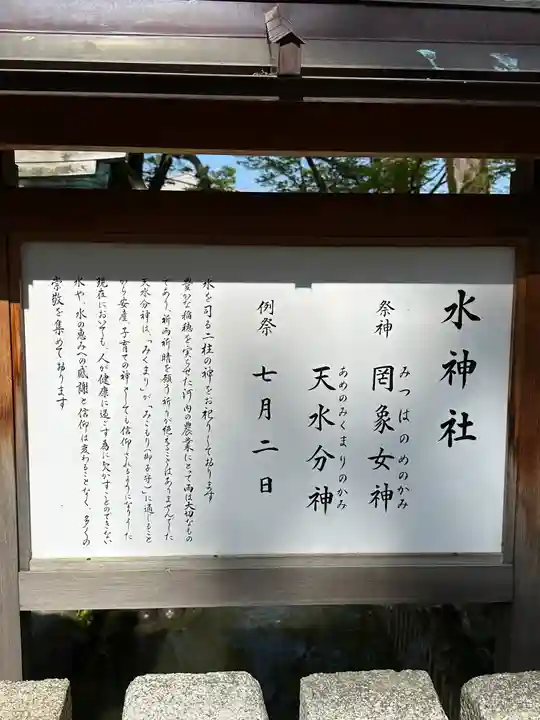 水神社
祭神
罔象女神
みつはのめのかみ
天水分神
あめのみくまりのかみ
例祭
七月二日
水を司る二柱の神をお祀りしております
豊かな稲穂を実らせた河内の農業にとって雨は大切なもの
であり、祈雨祈晴を願う祈りが絶えることはありませんでした
天水分神は、「みくまり」が「みこもり(御子守)」に通じること
から安産、子育ての神としても信仰されるようになりました
現在においても、人が健康に過ごす為に欠かすことのできない
水や、水の恵みへの感謝と信仰は変わることなく、多くの
崇敬を集めております